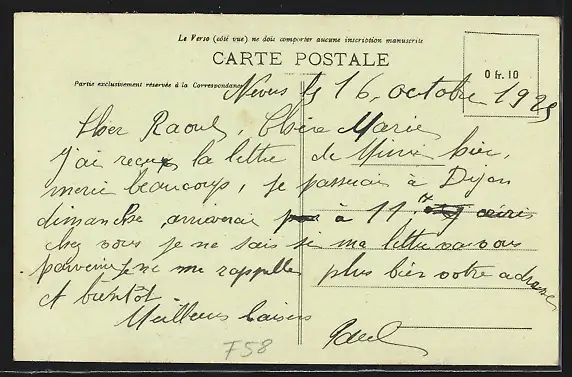 Le Verso (côté vue) ne doit comporter aucune inscription manuscrite
CARTE POSTALE
Partie exclusivement réservée à la Correspondance
0 fr. 10
Nevers le 16 octobre 1925
Cher Raoul, Chère Marie
J'ai reçu la lettre de Mimi hier,
merci beaucoup, je passerai à Dijon
dimanche, arriverai à 11h
chez vous je ne sais si ma lettre va vous
parvenir je ne me rappelle plus bien votre adresse
A bientôt
Meilleurs baisers
F58